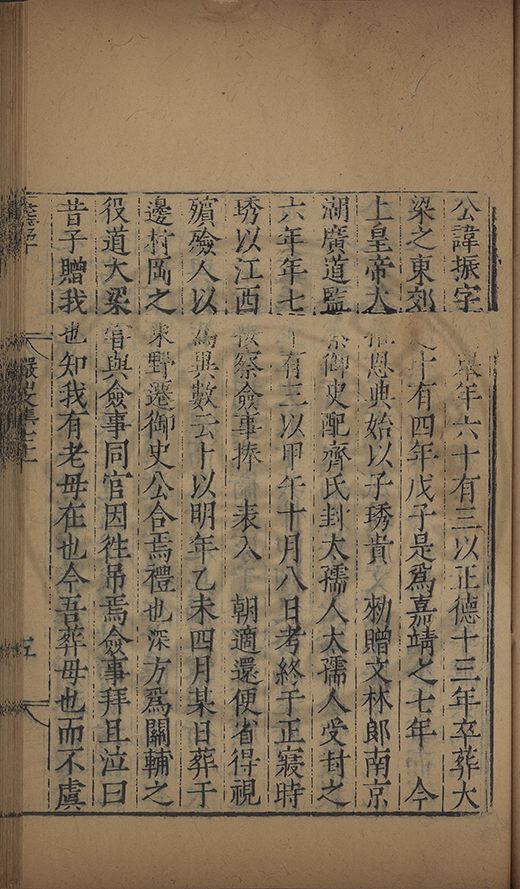 公諱振字□舉年六十有三以正德十三年卒葬大
梁之東郊□十有四年戊子是爲嘉靖之七年　今
上皇帝大推恩典始以子琇貴　勑贈文林郎南京
湖廣道監察御史配齊氏封太孺人太孺人受封之
六年年七十有三以甲午十月八日考終于正寢時
琇以江西按察僉事捧　表入　朝適還便省得視
殯殮人以爲異數云卜以明年乙未四月某日葬于
邊村岡之東野遷御史公合焉禮也深方爲關輔之
役道大梁官與僉事同官因徃吊焉僉事拜且泣曰
昔子贈我也知我有老母在也今吾葬母也而不虞
五